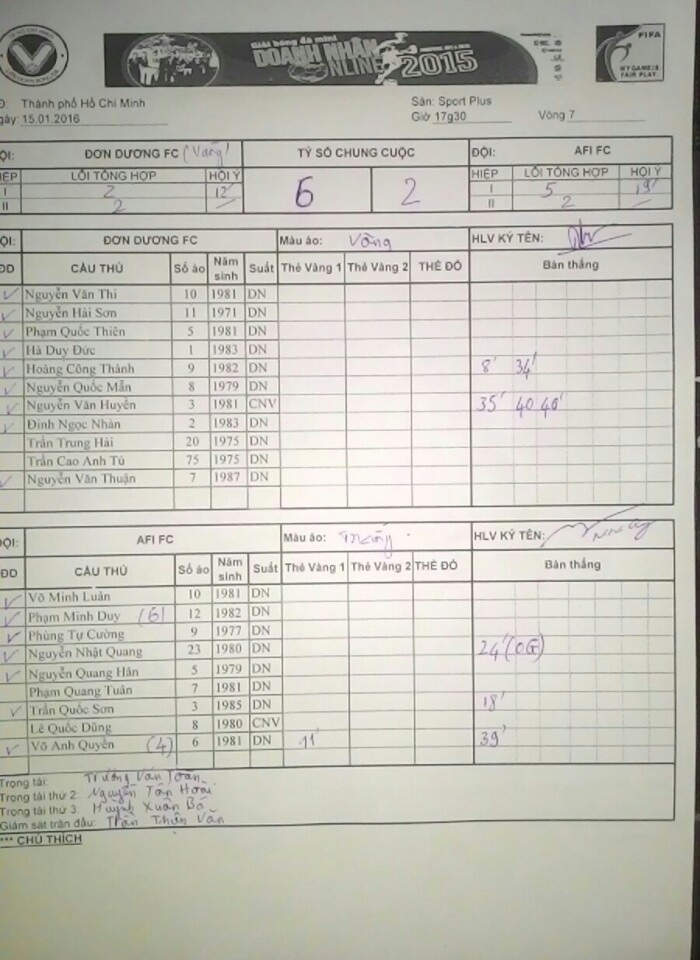 Giải bóng đá mini
DOANH NHÂN
ONLINE 2015
FIFA
MY GAME IS
FAIR PLAY
Thành phố Hồ Chí Minh
Sân: Sport Plus
gày: 15.01.2016
Giờ 17g30
Vòng 7
ỘI: ĐƠN DƯƠNG FC (Vàng) TỶ SỐ CHUNG CUỘC ĐỘI: AFI FC
HIỆP LỖI TỔNG HỢP HỘI Ý 6 2 HIỆP LỖI TỔNG HỢP HỘI Ý
I 2 12' I 5 19'
II 2 II 2
ỘI: ĐƠN DƯƠNG FC Màu áo: Vàng HLV KÝ TÊN:
ĐD CẦU THỦ Số áo Năm sinh Suất Thẻ Vàng 1 Thẻ Vàng 2 THẺ ĐỎ Bàn thắng
Nguyễn Văn Thi 10 1981 DN
Nguyễn Hải Sơn 11 1971 DN
Phạm Quốc Thiên 5 1981 DN
Hà Duy Đức 1 1983 DN
Hoàng Công Thành 9 1982 DN 8' 34'
Nguyễn Quốc Mẫn 8 1979 DN
Nguyễn Văn Huyền 3 1981 CNV 35' 40 40'
Đinh Ngọc Nhàn 2 1983 DN
Trần Trung Hải 20 1975 DN
Trần Cao Anh Tú 75 1975 DN
Nguyễn Văn Thuận 7 1987 DN
ỘI: AFI FC Màu áo: Trắng HLV KÝ TÊN:
ĐD CẦU THỦ Số áo Năm sinh Suất Thẻ Vàng 1 Thẻ Vàng 2 THẺ ĐỎ Bàn thắng
Võ Minh Luân 10 1981 DN
Phạm Minh Duy (6) 12 1982 DN
Phùng Tự Cường 9 1977 DN
Nguyễn Nhật Quang 23 1980 DN 24' (OG)
Nguyễn Quang Hân 5 1979 DN
Phạm Quang Tuân 7 1981 DN
Trần Quốc Sơn 3 1985 DN 18'
Lê Quốc Dũng 8 1980 CNV
Võ Anh Quyền (4) 6 1981 DN 11' 39'
Trọng tài: Trương Văn Toàn
Trọng tài thứ 2: Nguyễn Tấn Hoài
Trọng tài thứ 3: Huỳnh Xuân Bá
Giám sát trận đấu: Trần Thiên Văn
*** CHÚ THÍCH